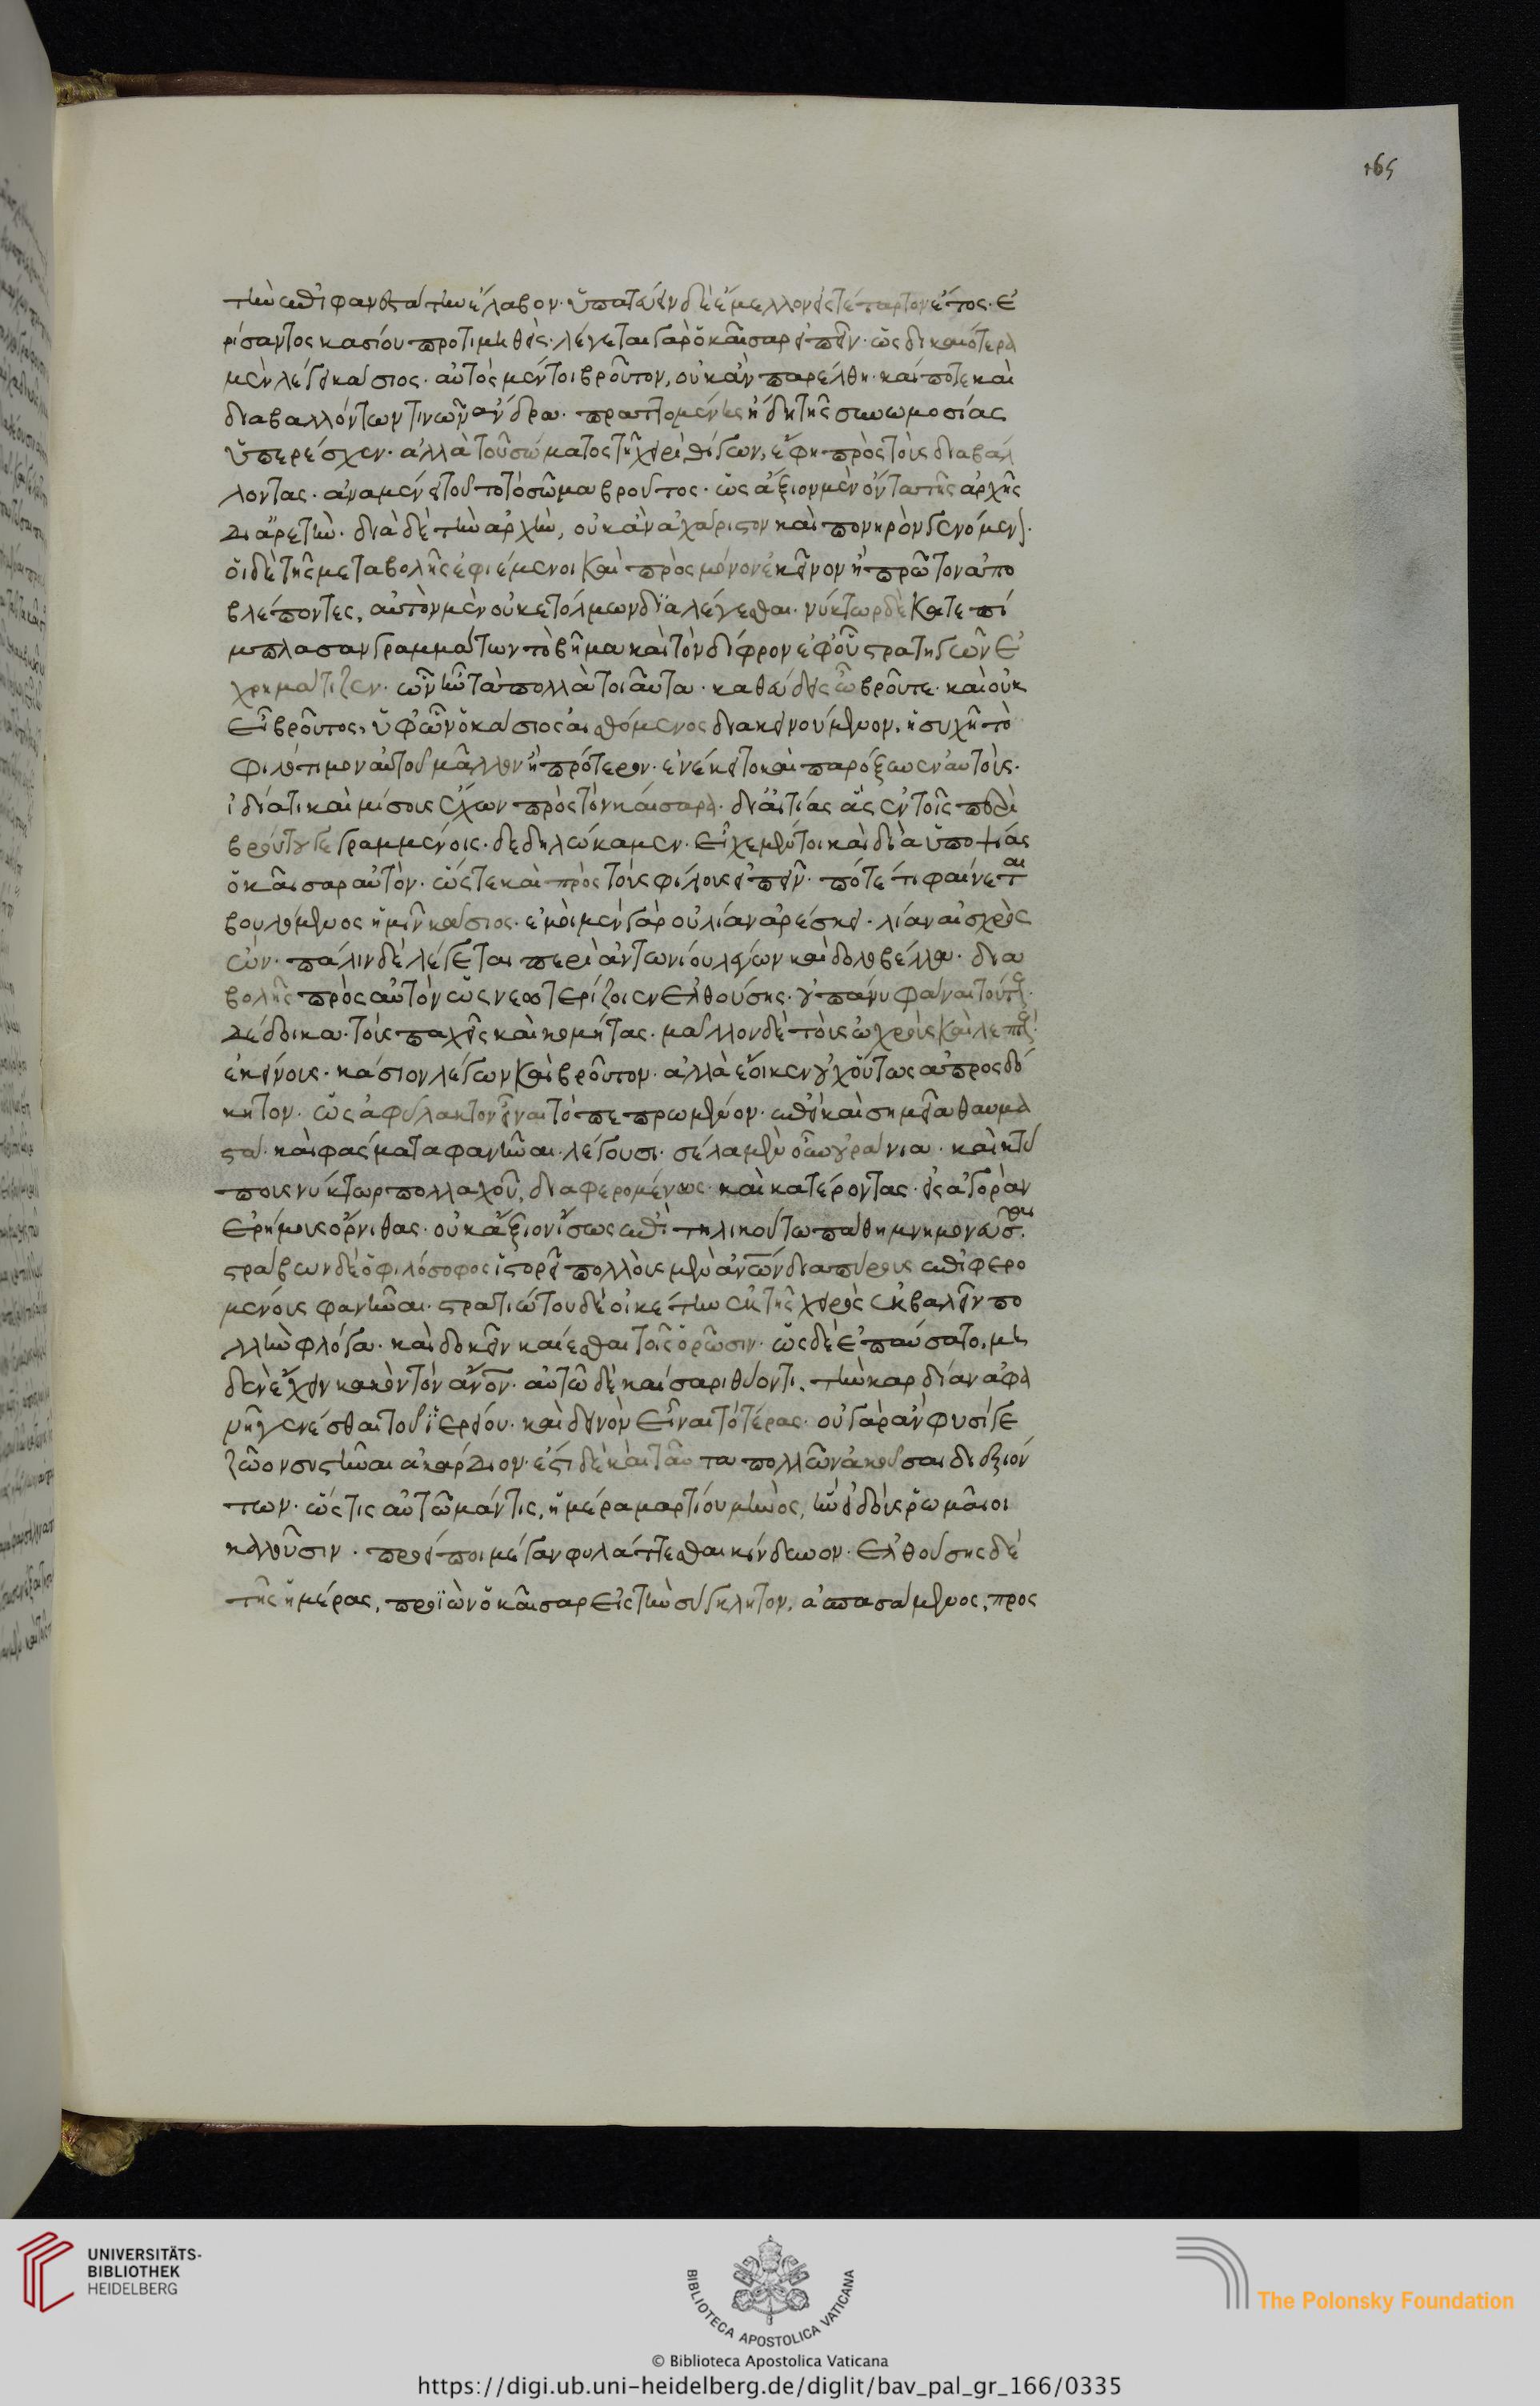 165
τὴν ἐπιφανεστάτην ἔλαβον· ὑπατεύειν δὲ ἔμελλον εἰς τέταρτον ἔτος· ἐ
ρίσαντος κασίου προτιμηθείς· λέγεται γὰρ ὁ καῖσαρ εἰπεῖν· ὡς δικαιότερα
μὲν λέγει κάσιος· αὐτὸς μέντοι βροῦτον, οὐκ ἂν παρέλθη· καί ποτε καὶ
διαβαλλόντων τινῶν τὸν ἄνδρα· πραττομένης ἤδη τῆς συνωμοσίας
ὑπερέσχεν· ἀλλὰ τοῦ σώματος τῇ χειρὶ θίγων, ἔφη πρὸς τοὺς διαβάλ
λοντας· ἀναμενεῖ τοῦτο τὸ σῶμα βροῦτος· ὡς ἄξιον μὲν ὄντα τῆς ἀρχῆς
δι ἀρετὴν· διὰ δὲ τὴν ἀρχὴν, οὐκ ἂν ἀχάριστον καὶ πονηρὸν γενόμενον·
οἱ δὲ τῆς μεταβολῆς ἐφιέμενοι καὶ πρὸς μόνον ἐκεῖνον ἢ πρῶτον ἀπο
βλέποντες, αὐτὸν μὲν οὐκ ἐτόλμων διαλέγεσθαι· νύκτωρ δὲ κατεπί
μπλασαν γραμμάτων τὸ βῆμα καὶ τὸν δίφρον ἐφ οὗ στρατηγῶν ἐ
χρημάτιζεν· ὧν ἦν τὰ πολλὰ τοιαῦτα· καθεύδεις ὦ βροῦτε· καὶ οὐκ
εἶ βροῦτος, ὑφ ὧν ὁ κάσιος αἰσθόμενος διακινούμενον, ἡσυχῇ τὸ
φιλότιμον αὐτοῦ μᾶλλον ἢ πρότερον· ἐνέκειτο καὶ παρόξυνεν αὐτοὺς·
ἰδίᾳ τι καὶ μίσους ἔχων πρὸς τὸν καίσαρα· δι αἰτίας ἃς ἐν τοῖς περὶ
βρούτου γεγραμμένοις· δεδηλώκαμεν· εἶχε μέντοι καὶ δι ὑποψίας
ὁ καῖσαρ αὐτὸν· ὥστε καὶ πρὸς τοὺς φίλους εἰπεῖν· πότε τι φαίνεται
βουλόμενος ἡμῖν κάσιος· ἐμοὶ μὲν γὰρ οὐ λίαν ἀρέσκει· λίαν αἰσχρὸς
ὤν· πάλιν δὲ λέγεται περὶ ἀντωνίου λέγων καὶ δολοβέλλα· δια
βολῆς πρὸς αὐτὸν ὡς νεωτερίζοιεν ἐλθούσης· οὐ πάνυ φάναι τούτους·
δέδοικα· τοὺς παχεῖς καὶ κομήτας· μᾶλλον δὲ τοὺς ὠχροὺς καὶ λεπτοὺς·
ἐκείνους· κάσιον λέγων καὶ βροῦτον· ἀλλὰ ἔοικεν οὐχ οὕτως ἀπροσδό
κητον· ὡς ἀφύλακτον εἶναι τὸ πεπρωμένον· ἐπεὶ καὶ σημεῖα θαυμα
στὰ· καὶ φάσματα φανῆναι λέγουσι· σέλα μὲν οὖν οὐράνια· καὶ κτύ
πους νύκτωρ πολλαχοῦ, διαφερομένους· καὶ κατέροντας· εἰς ἀγορὰν
ἐρήμους ὄρνιθας· οὐκ ἄξιον ἴσως ἐπὶ τηλικούτω πάθη μνημονεῦσαι·
στράβων δὲ ὁ φιλόσοφος ἱστορεῖ πολλοὺς μὲν ἀνων διαπύρους ἐπιφερο
μένους φανῆναι· στρατιώτου δὲ οἰκέτην ἐκ τῆς χειρὸς ἐκβαλεῖν πο
λλὴν φλόγα· καὶ δοκεῖν καίεσθαι τοῖς ὁρῶσιν· ὡς δὲ ἐπαύσατο, μη
δὲν ἔχειν κακὸν τὸν ἄνον· αὐτῶ δὲ καίσαρι θύοντι, τὴν καρδίαν ἀφα
νῆ γενέσθαι τοῦ ἱερείου· καὶ δεινὸν εἶναι τὸ τέρας· οὐ γὰρ ἂν φύσει γε
ζῶον συστῆναι ἀκάρδιον· ἔστι δὲ καὶ ταῦτα πολλῶν ἀκοῦσαι διεξιόν
των· ὥς τις αὐτῶ μάντις, ἡμέρα μαρτίου μηνὸς, ἣν εἰδοὺς ῥωμαῖοι
καλοῦσιν· προείποι μέγαν φυλάττεσθαι κίνδυνον· ἐλθούσης δὲ
τῆς ἡμέρας, προϊὼν ὁ καῖσαρ εἰς τὴν σύγκλητον, ἀσπασάμενος, προς
UNIVERSITÄTS-
BIBLIOTHEK
HEIDELBERG
BIBLIOTECA APOSTOLICA VATICANA
The Polonsky Foundation
© Biblioteca Apostolica Vaticana
https://digi.ub.uni-heidelberg.de/diglit/bav_pal_gr_166/0335